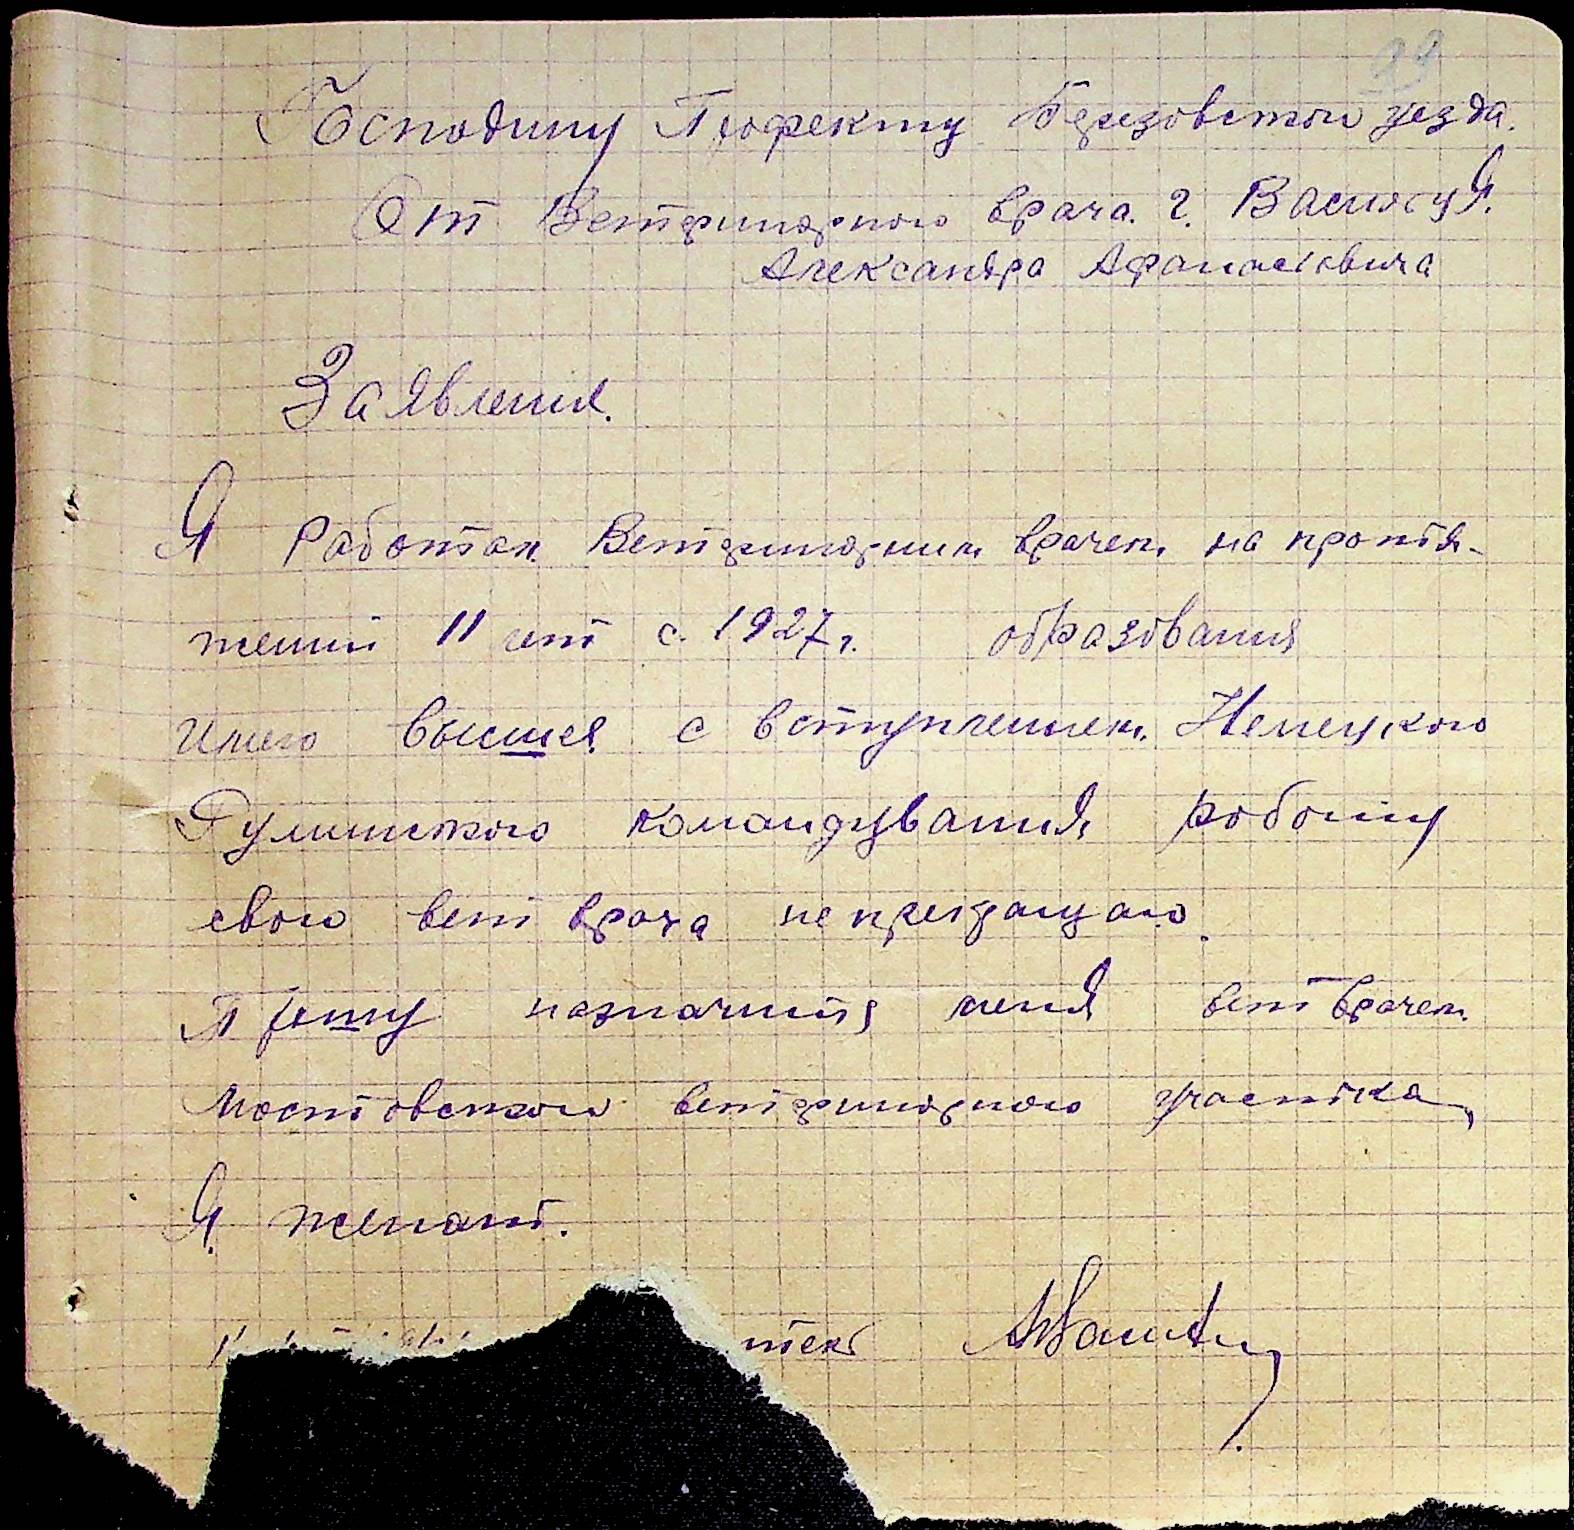 99
Господину Префекту Березовского уезда.
От Ветеринарного врача. г. Васлюсуя.
Александра Афанасиовича
Заявления.
Я Работал Ветеринарним врачем на протя-
жении 11 лет с. 1927г. образования
имею высшея с вступлением. Немецкого
Румынского командувания работу
свою вет врача непрекращаю.
Прошу назначитя меня вет врачем.
Мостовского ветеринарного участка,
Я. женат.